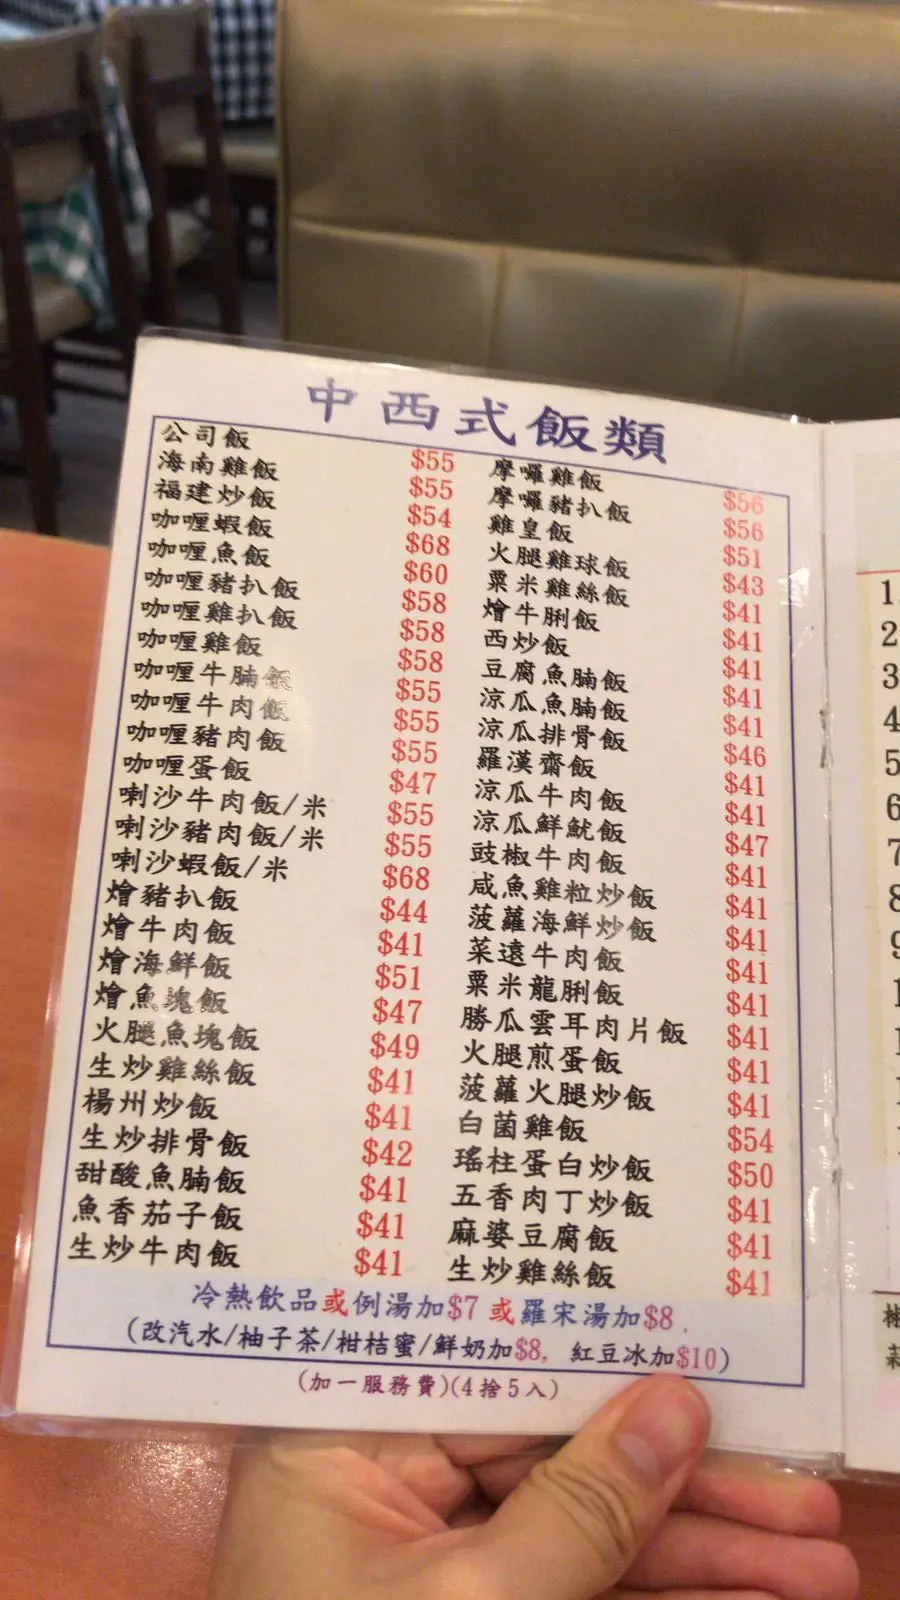 中西式飯類
公司飯 $55
海南雞飯 $55
福建炒飯 $54
咖喱蝦飯 $68
咖喱魚飯 $60
咖喱豬扒飯 $58
咖喱雞扒飯 $58
咖喱雞飯 $58
咖喱牛腩飯 $55
咖喱牛肉飯 $55
咖喱豬肉飯 $55
咖喱蛋飯 $47
喇沙牛肉飯/米 $55
喇沙豬肉飯/米 $55
喇沙蝦飯/米 $68
燴豬扒飯 $44
燴牛肉飯 $41
燴海鮮飯 $51
燴魚塊飯 $47
火腿魚塊飯 $49
生炒雞絲飯 $41
楊州炒飯 $41
生炒排骨飯 $42
甜酸魚腩飯 $41
魚香茄子飯 $41
生炒牛肉飯 $41
摩囉雞飯 $56
摩囉豬扒飯 $56
雞皇飯 $51
火腿雞球飯 $43
粟米雞絲飯 $41
燴牛脷飯 $41
西炒飯 $41
豆腐魚腩飯 $41
涼瓜魚腩飯 $41
涼瓜排骨飯 $46
羅漢齋飯 $41
涼瓜牛肉飯 $41
涼瓜鮮魷飯 $47
豉椒牛肉飯 $41
咸魚雞粒炒飯 $41
菠蘿海鮮炒飯 $41
菜遠牛肉飯 $41
粟米龍脷飯 $41
勝瓜雲耳肉片飯 $41
火腿煎蛋飯 $41
菠蘿火腿炒飯 $41
白菌雞飯 $54
瑤柱蛋白炒飯 $50
五香肉丁炒飯 $41
麻婆豆腐飯 $41
生炒雞絲飯 $41
冷熱飲品或例湯加$7 或羅宋湯加$8.
(改汽水/柚子茶/柑桔蜜/鮮奶加$8, 紅豆冰加$10)
(加一服務費)(4捨5入)
1.
2
3
4
5
6
7
8
9